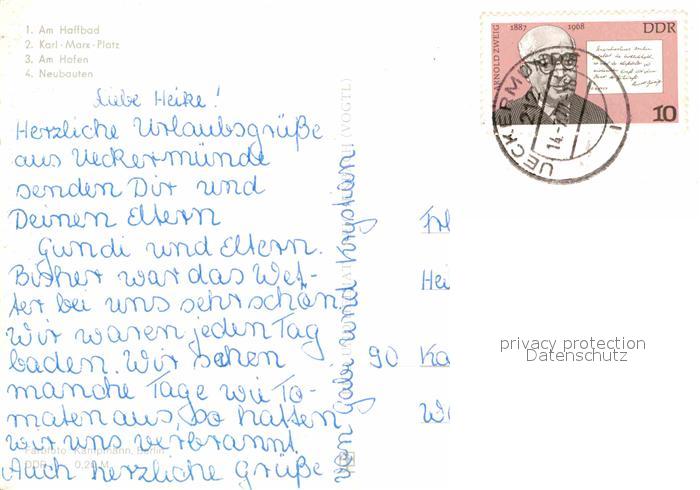 1. Am Haffbad
2. Karl-Marx-Platz
3. Am Hafen
4. Neubauten
Liebe Heike!
Herzliche Urlaubsgrüße
aus Ueckermünde
senden Dir und
Deinen Eltern
Gundi und Eltern.
Bisher war das Wet-
ter bei uns sehr schön.
Wir waren jeden Tag
baden. Wir sahen
manche Tage wie To-
maten aus, so hatten
wir uns verbrannt.
Auch herzliche Grüße
von Gabi und Krystian.
Farbfoto: Kampmann, Berlin
DDR 0,20 M
(VOGTL)
ARNOLD ZWEIG 1887 1968
DDR
10
UECKERMÜNDE
212
14.-7.
Frl
Hei
90 Ka
privacy protection
Datenschutz